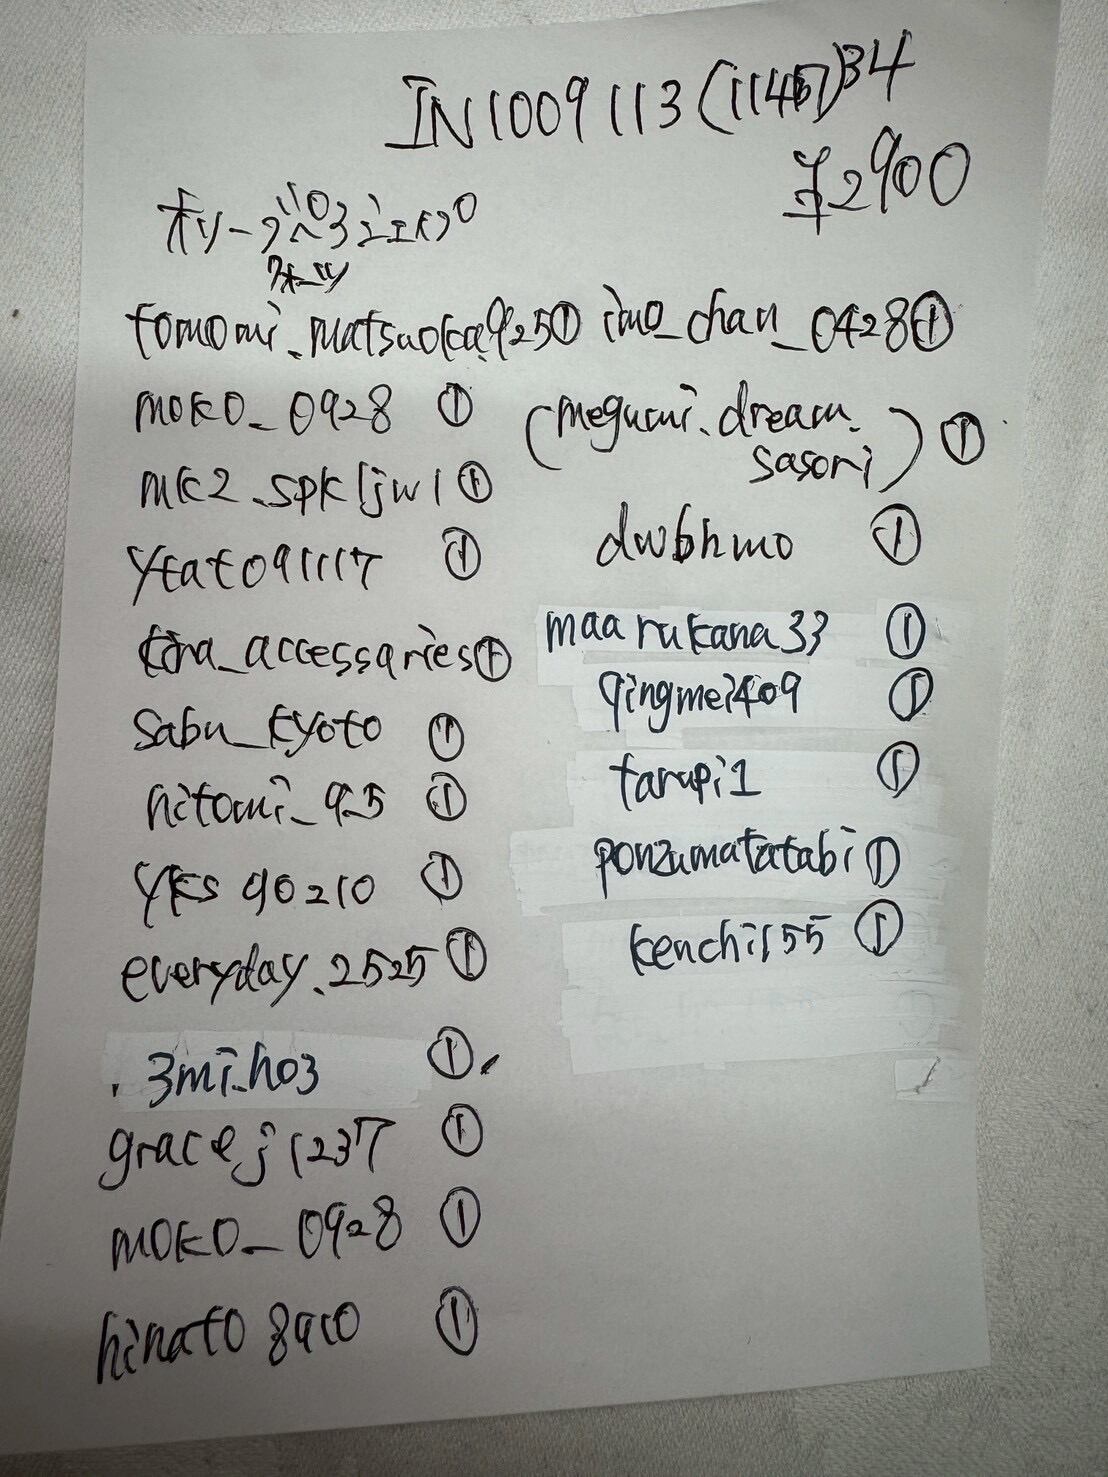 IN1009113(11457)34
¥2900
クォーツ
tomomi_matsuoka925①
moko_0928 ①
mk2.spkljw1①
ytato091117 ①
kira_accessaries①
sabu_kyoto ①
hitomi_925 ①
yks90210 ①
everyday.2525①
.3mi.ho3 ①.
gracej1237 ①
moko_0928 ①
hinato8910 ①
imo_chan_0428①
(megumi.dream.
sasori) ①
dwbhmo ①
maarukana33 ①
qingmei409 ①
tarupi1 ①
ponzumatatabi①
kenchi155 ①